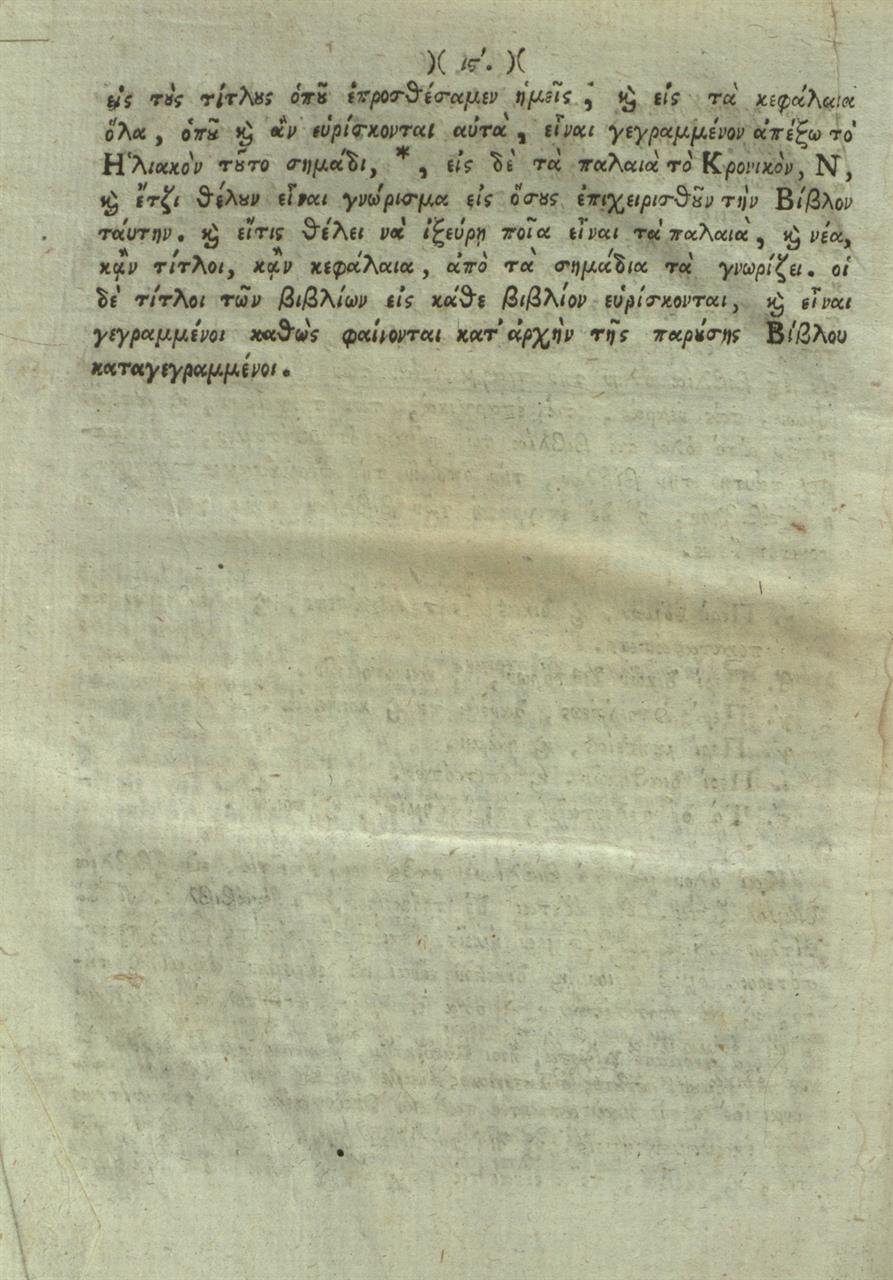 )( ιϛʹ. )(
εἰς τȣ̀ς τίτλȣς ὁπȣ͂ ἐπροσθέσαμεν ἡμεῖς, ϗ̀ εἰς τὰ κεφάλαια
ὅλα, ὁπȣ͂ ϗ̀ ἂν εὑρίσκονται αὐτὰ, εἶναι γεγραμμένον ἀπέξω τὸ
Ἡλιακὸν τȣ͂το σημάδι, *, εἰς δὲ τὰ παλαιὰ τὸ Κρονικὸν, Ν,
ϗ̀ ἔτζι θέλȣν εἶναι γνώρισμα εἰς ὅσȣς ἐπιχειρισθȣ͂ν τὴν Βίβλον
ταύτην. ϗ̀ εἴτις θέλει νὰ ἰξεύρῃ ποῖα εἶναι τὰ παλαιὰ, ϗ̀ νέα,
κᾂν τίτλοι, κᾂν κεφάλαια, ἀπὸ τὰ σημάδια τὰ γνωρίζει. οἱ
δὲ τίτλοι τῶν βιβλίων εἰς κάθε βιβλίον εὑρίσκονται, ϗ̀ εἶναι
γεγραμμένοι καθὼς φαίνονται κατ᾿ ἀρχὴν τῆς παρȣ́σης Βίβλου
καταγεγραμμένοι.